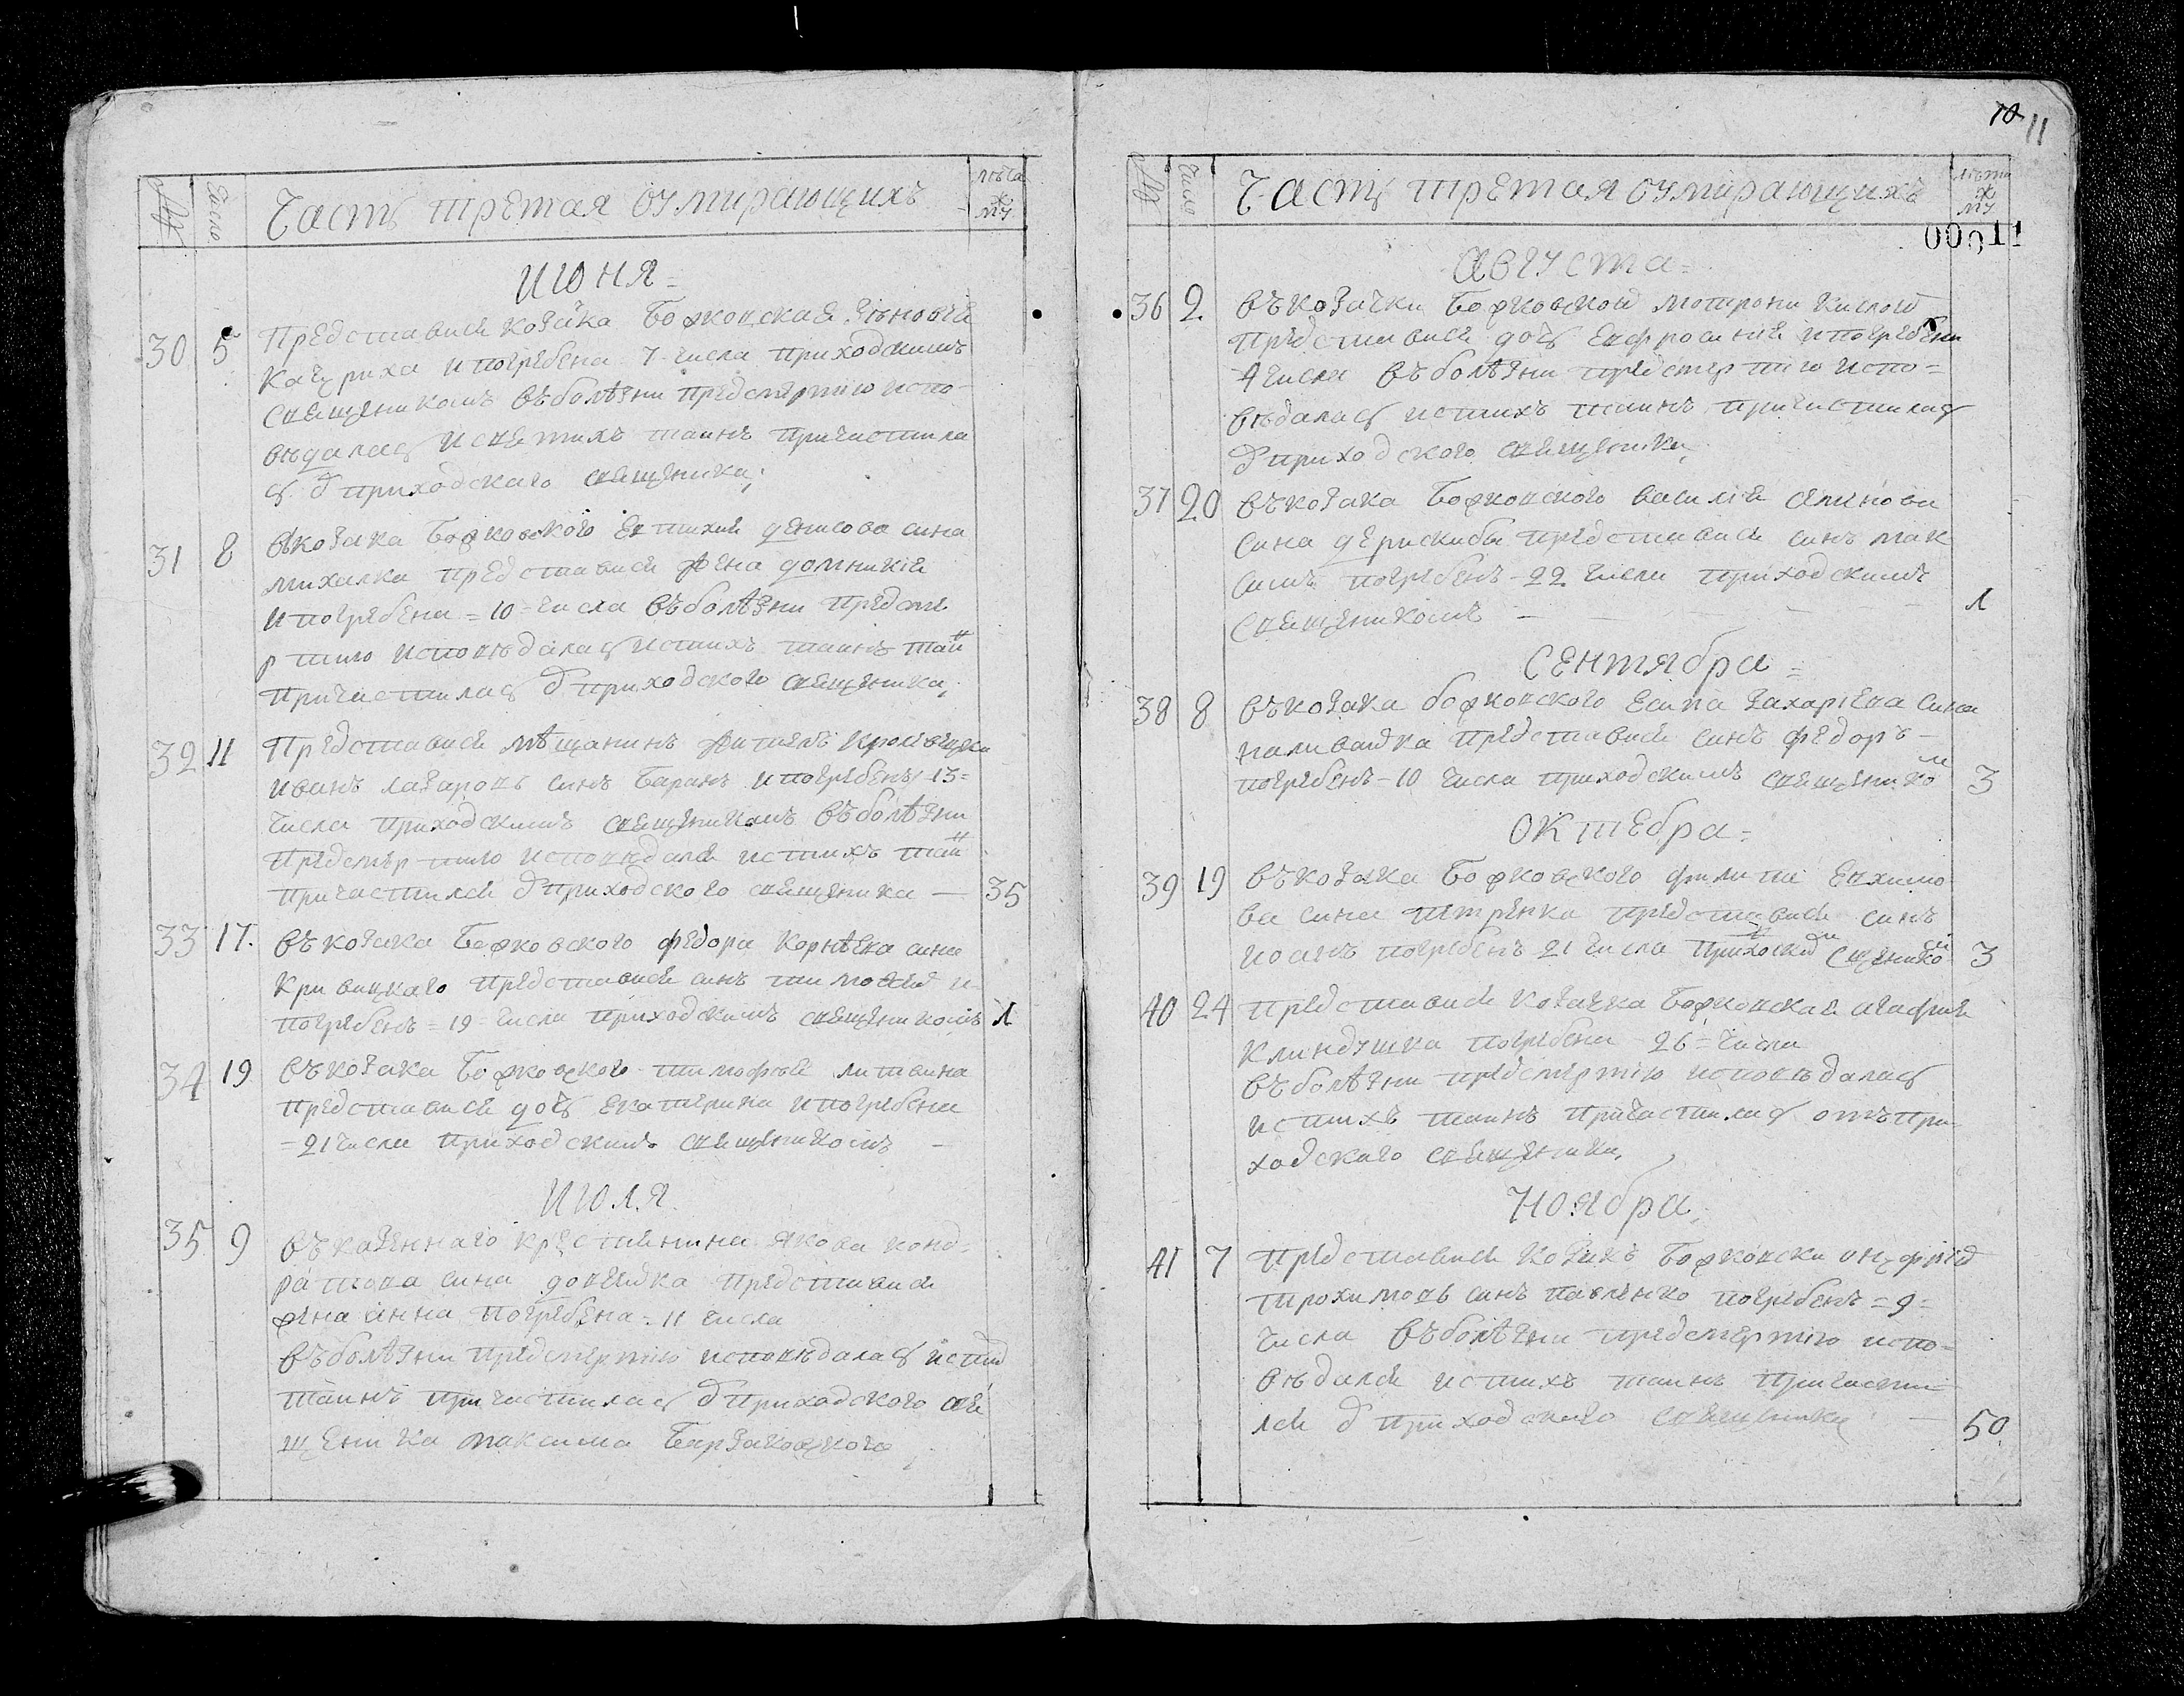 Число
Часть третая оумирающихъ
лѣта
му
Июня =
30 5 Представися козачка Божковская Зѣновия
Кацриха и погребена 7 числа приходскимъ
священикомъ въ болѣзни предсмертию испо-
ведалась и светихъ таинъ причастила
сь ѿ приходскаго священика,
31 8 Въ козака Божковского Евтихия Денисова сина
Михалка представися жена Домникия
и погребена = 10 = числа въ болѣзни предсме
ртию исповѣдалась и стихъ таинъ
причастилась ѿ приходского священика,
32 11 Представися мѣщанинъ житель
Иванъ Лазаровъ синъ Баранъ и погребенъ - 13 =
числа приходскимъ священикомъ въ болѣзни
предсмертию исповѣдался и стихъ таи
причастился ѿ приходского священика — 35
33 17. Въ козака Божковского Федора Корнѣева сина
Кривицкаго представися синъ Тимофей и
погребенъ = 19 = числа приходскимъ священикомъ 1
34 19 Въ козака Божковского Тимофея Литвина
представися дочь Екатерина и погребена
= 21 числа приходскимъ священикомъ —
Июля
35 9 Въ казеннаго крестянина Якова Конд-
ратова сина представися
жена Анна погребена = 11 числа
въ болѣзни предсмертию исповѣдалась и стих
таинъ причастилась ѿ приходского свя
щеника Максима
10 11
Число
Часть третая оумирающихъ
лѣта
му
00011
Августа =
36 2 Въ козачки Божковской Мотрони Кислой
представися дочь Евфросиния и погребена
4 числа въ болѣзни предсмертию испо =
вѣдалась и стихъ таинъ причастилась
ѿ приходского священика,
37 20 Въ козака Божковского Василия Симнова
сина Дерискиби представися синъ Мак
симъ погребенъ - 22 числа приходскимъ
священикомъ — 1
Сентября =
38 8 Въ козака Божковского Есипа Захариева сина
Наливайка представися синъ Федоръ —
погребенъ - 10 числа приходскимъ священико м 3
Октебра =
39 19 Въ козака Божковского Филипа Евхимо
ва сина Петренка представися синъ
Иоанъ погребенъ 21 числа прихоски сщенико 3
40 24 Представися козачка Божковская Агафия
Клиндушка погребена - 26 = числа
въ болѣзни предсмертию исповѣдалась
и стихъ таинъ причастилась отъ при-
ходскаго священика,
Ноября,
41 7 Представися козакъ Божковски Онуфрий
Трохимовъ синъ Павленко погребенъ = 9 =
числа въ болѣзни предсмертию испо =
вѣдался и стихъ таинъ причасти
лся ѿ приходскаго священика — 50